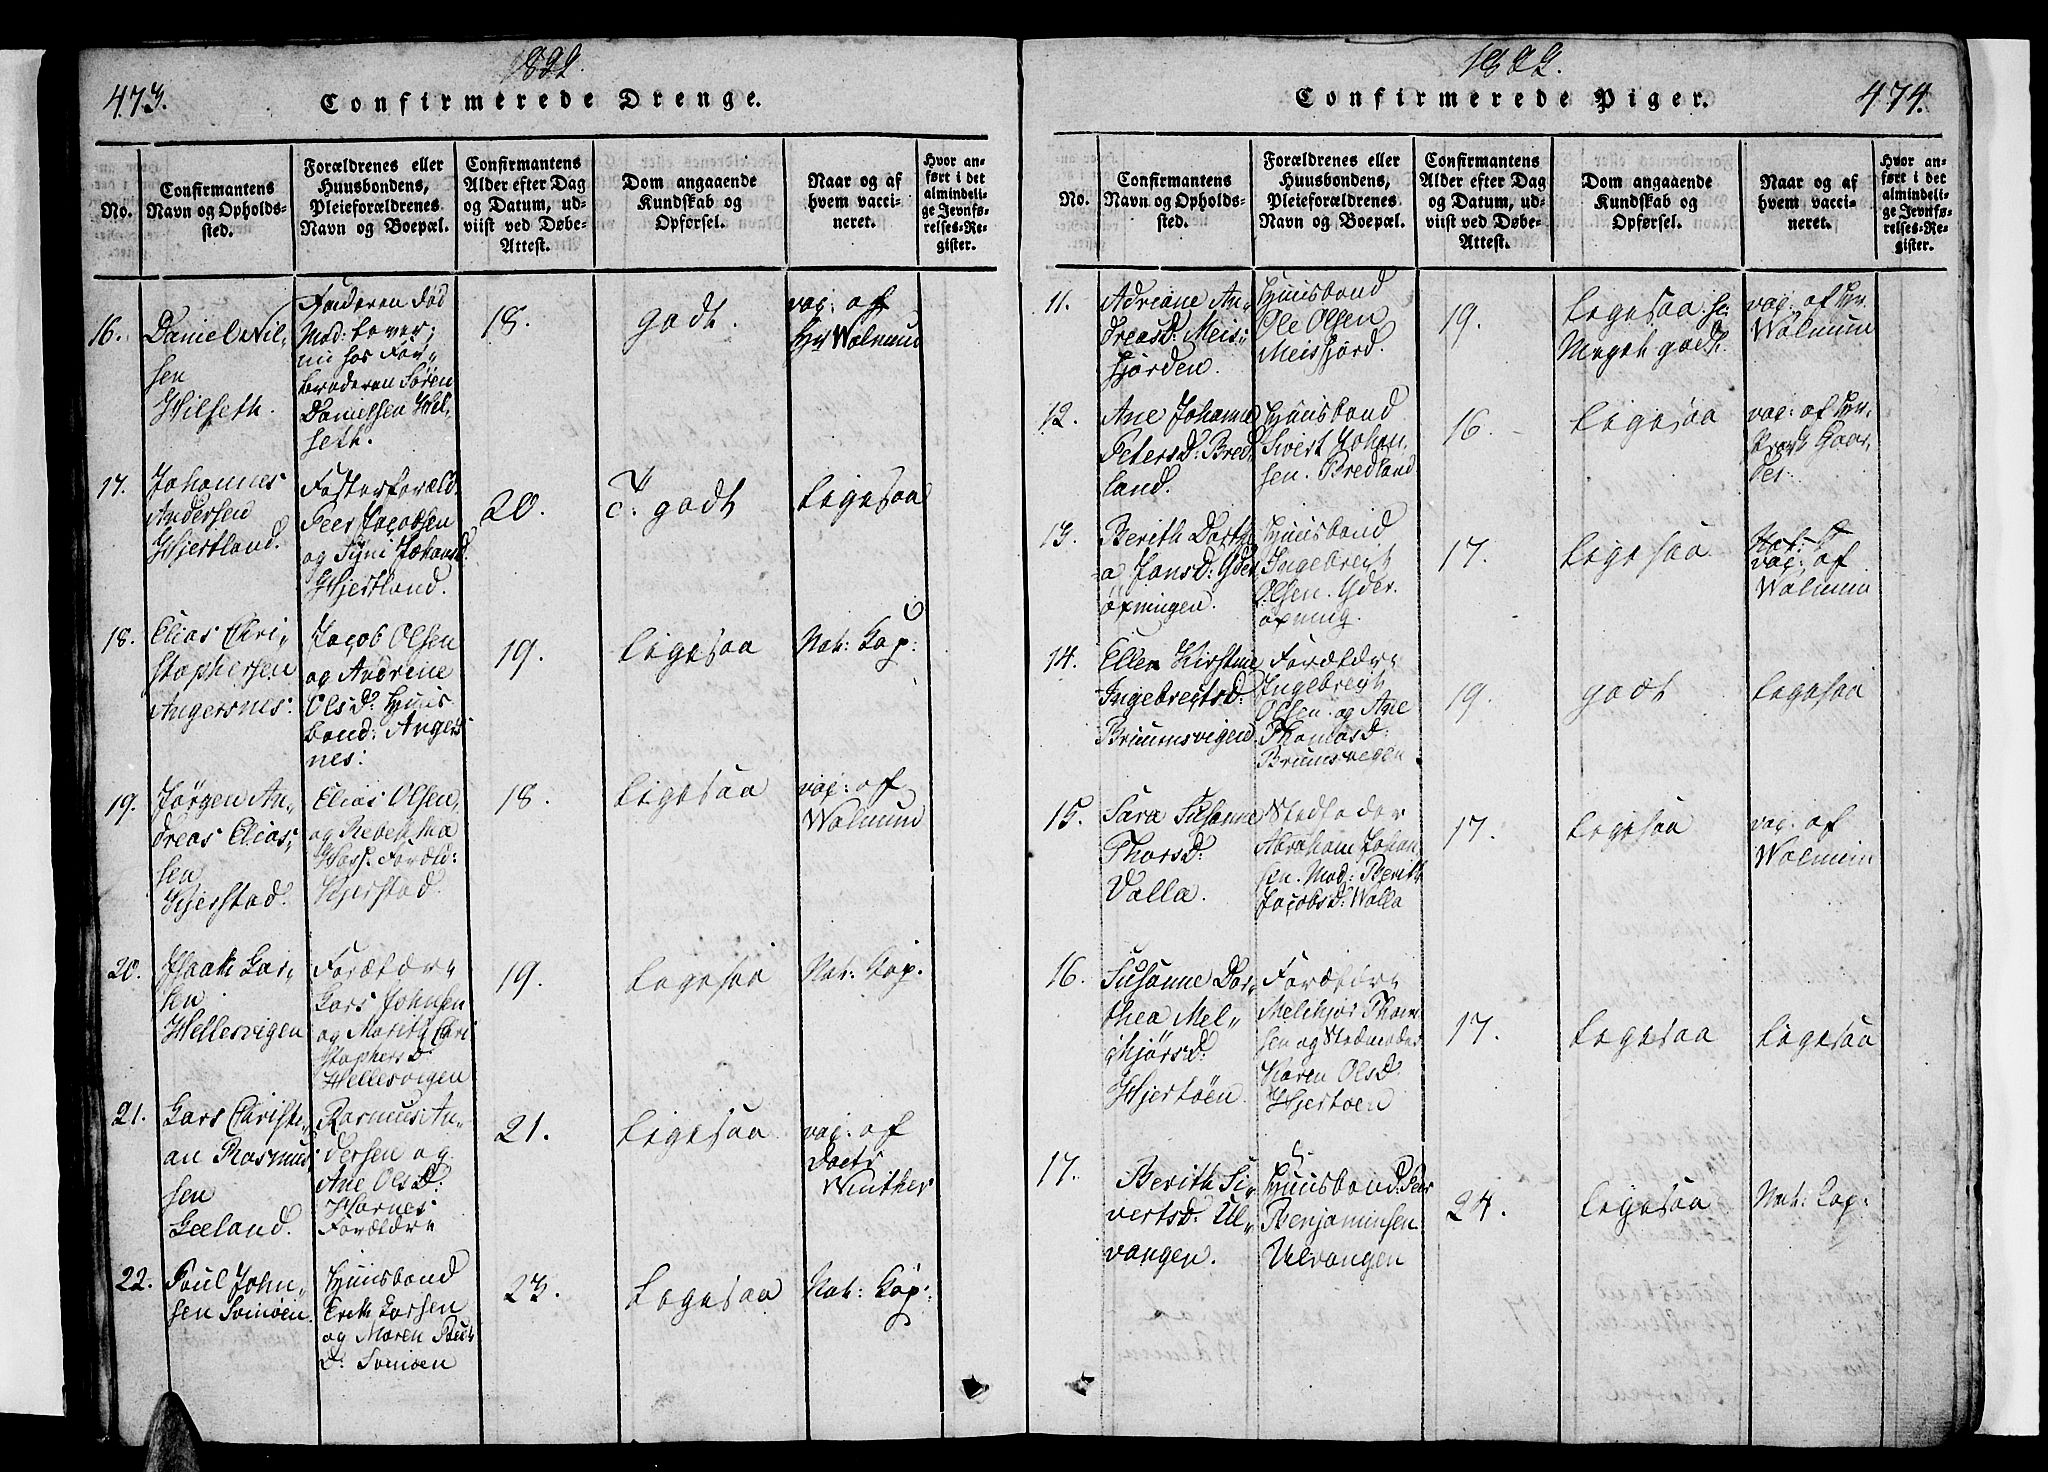 1822.
473.
Confirmerede Drenge.
No.
Confirmantens
Navn og Opholds-
sted.
Forældrenes eller
Huusbondens,
Pleieforældrenes
Navn og Boepæl.
Confirmantens
Alder efter Dag
og Datum, ud-
viist ved Døbe-
Attest.
Dom angaaende
Kundskab og
Opførsel.
Naar og af
hvem vacci-
neret.
Hvor an-
ført i det
almindeli-
ge Jevnfø-
relses-Re-
gister.
16.
Daniel Nil-
sen
Hilseth.
Faderen død
Mod: lever;
nu hos Far-
broderen Sören
Danielsen Hil-
seth.
18.
godt.
vac: af
Hr Walnum
17.
Johannes
Andersen
Hjertland.
Fosterforæld:
Peer Jacobsen
og Syni Johansd.
Hjertland.
20.
T. godt
Ligesaa
18.
Elias Chri-
stophersen
Angersnes.
Jacob Olsen
og Andrine
Olsd: Huus
bond: Angers
nes:
19.
Ligesaa
Nat: Cop:
19.
Jörgen An-
dreas Elias-
sen
Kjerstad.
Elias Olsen,
og Rebekka
Foræld:
Kjerstad.
18.
Ligesaa
vac: af
Walnum
20.
Isaak Lar-
sen
Hellesvigen
Forældre
Lars Johnsen
og Marith Chri
stophersd:
Hellesvigen
19.
Ligesaa
Nat: Cop.
21.
Lars Christi-
an Rasmus-
sen
Leeland.
Rasmus An-
dersen og
Ane Olsd:
Hornes
Forældre
21.
Ligesaa
vac: af
Doct:
Winther
22.
Poul John-
sen Somöen.
Huusbond
Erik Larsen
og Maren Poul
D: Somöen
23.
Ligesaa
Nat: Cop:
1822.
474.
Confirmerede Piger.
No.
Confirmantens
Navn og Opholds-
sted.
Forældrenes eller
Huusbondens,
Pleieforældrenes
Navn og Boepæl.
Confirmantens
Alder efter Dag
og Datum, ud-
viist ved Døbe-
Attest.
Dom angaaende
Kundskab og
Opførsel.
Naar og af
hvem vacci-
neret.
Hvor an-
ført i det
almindeli-
ge Jevnfø-
relses-Re-
gister.
11.
Adriane An-
dreasd: Meis-
fjorden.
Huusbond
Ole Olsen
Meisfjord.
19.
Ligesaa
Meget godt.
vac: af Hr.
Walnum
12.
Ane Johanne
Petersd: Bred
land.
Huusbond
Sivert Johan
sen. Bredland
16.
Ligesaa
vac: af Hr.
13.
Berith Dorthe
a Jonsd: Yder
öxningen.
Huusbond
Ingebregt
Olsen. Yder
öxning.
17.
Ligesaa
vac: af
Walnum
14.
Ellen Kirstine
Ingebregtsd:
Bruunsvigen
Forældre
Ingebregt
Olsen. og Ane
Thomasd:
Bruunsvigen
19.
godt
Ligesaa
15.
Sara Susanne
Thorsd:
Valla.
Stedfader
Abraham Johan
sen. Mod: Berith
Jacobsd: Walla
17.
Ligesaa
vac: af
Walnum
16.
Susanne Dor-
thea Mel-
chjörsd:
Hjertöen.
Forældre
Melchjor Thom
sen og Stedmoder
Karen Olsd
Hjertöen
17.
Ligesaa
Ligesaa
17.
Berith Si-
vertsd: Ul-
vangen.
Huusbond: Peer
Benjaminsen
Ulvangen
24.
Ligesaa
Nat: Cop: